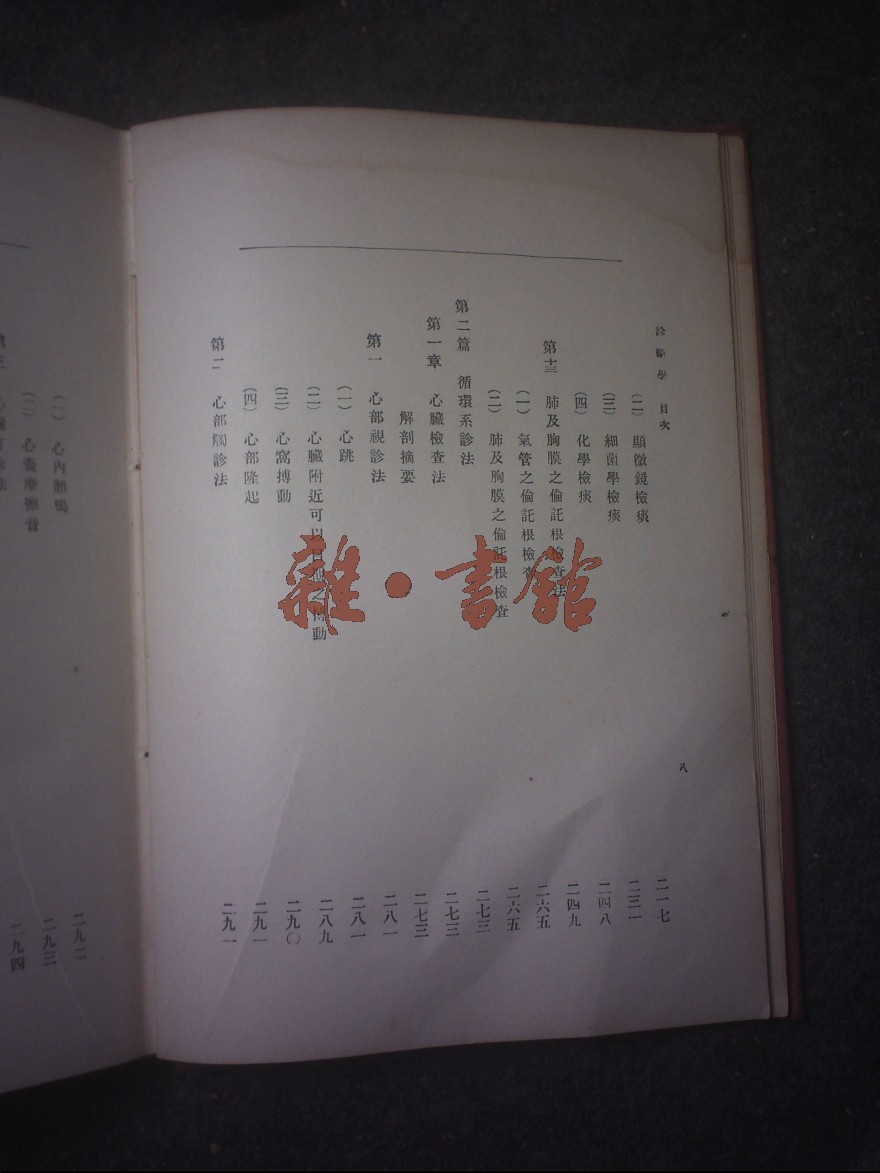 診斷學 目次 八
(二) 顯微鏡檢痰 二一七
(三) 細菌學檢痰 二三一
(四) 化學檢痰 二四八
第十三 肺及胸膜之倫託根檢查法 二四九
(一) 氣管之倫託根檢查 二六五
(二) 肺及胸膜之倫託根檢查 二六五
第二篇 循環系診法 二七三
第一章 心臟檢查法 二七三
解剖摘要 二七三
第一 心部視診法 二八一
(一) 心跳 二八一
(二) 心臟附近可以目視之搏動 二八九
(三) 心窩搏動 二九〇
(四) 心部隆起 二九一
第二 心部觸診法 二九一
心內顫鳴 二九二
心囊摩擦音 二九三
二九四
雜·書館